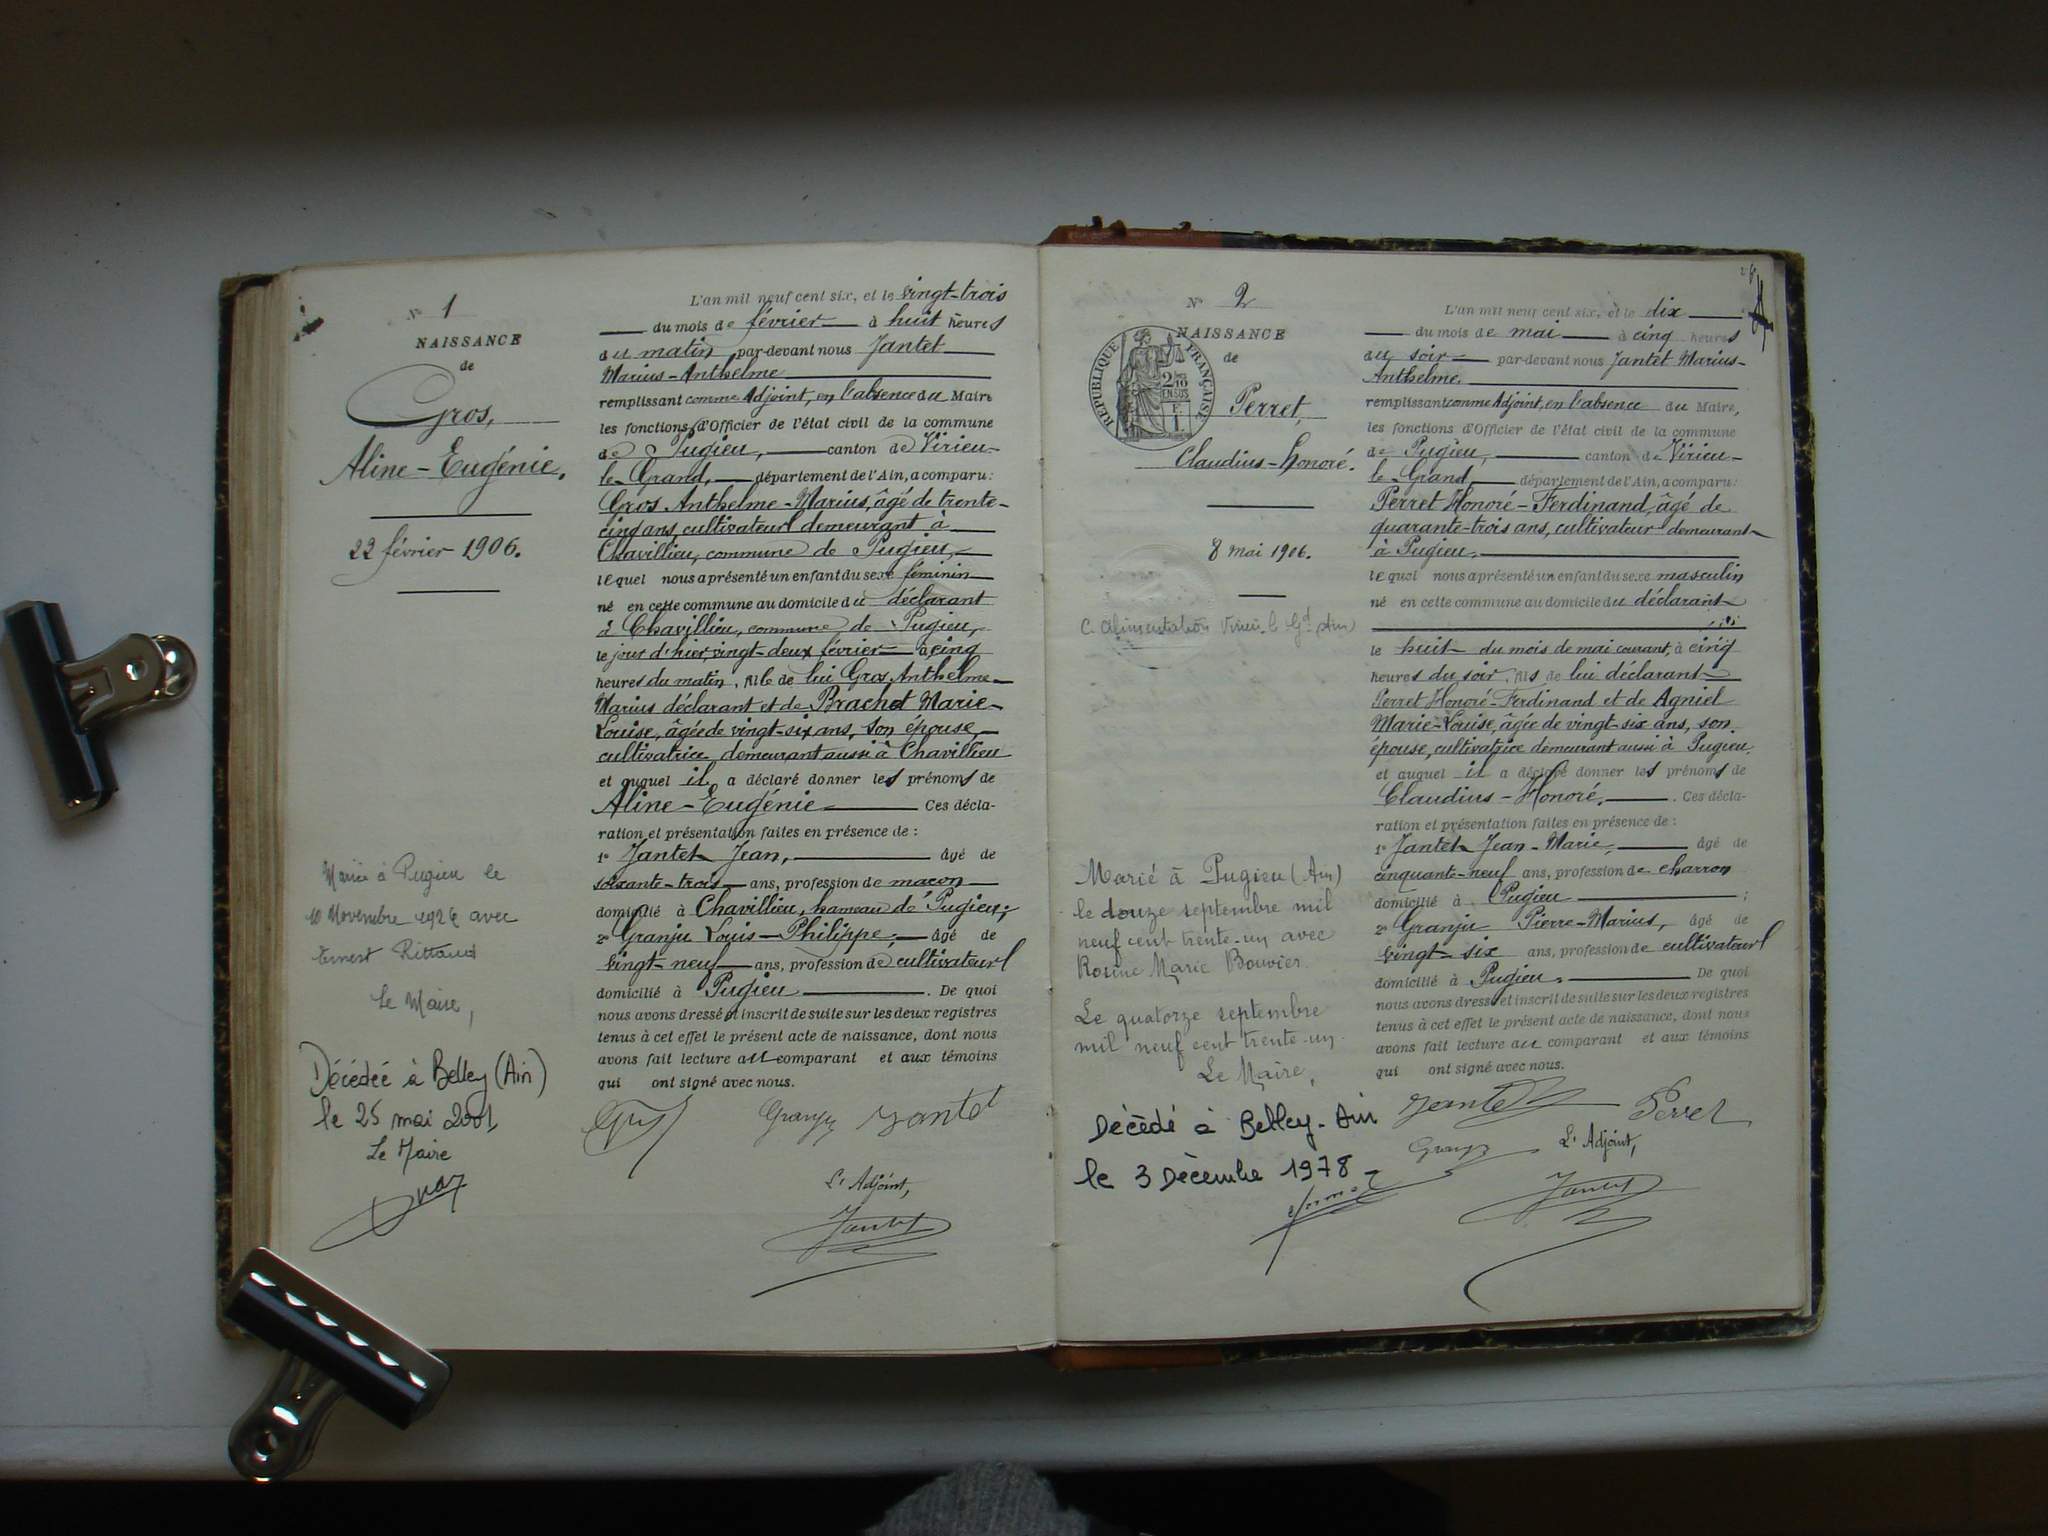 N° 1
NAISSANCE
de
Gros,
Aline-Eugénie.
22 février 1906.
Mariée à Pugieu le
10 Novembre 1926 avec
Ernest Rittaud
Le Maire,
Décédée à Belley (Ain)
le 25 mai 2001
Le Maire
L'an mil neuf cent six, et le vingt-trois
du mois de février à huit heures
du matin par-devant nous Jantet
Marius-Anthelme
remplissant comme Adjoint, en l'absence du Maire
les fonctions d'Officier de l'état civil de la commune
de Pugieu, canton de Virieu-
le-Grand, département de l'Ain, a comparu:
Gros Anthelme-Marius, âgé de trente-
cinq ans, cultivateur demeurant à
Chavillieu, commune de Pugieu,
lequel nous a présenté un enfant du sexe féminin
né en cette commune au domicile du déclarant
à Chavillieu, commune de Pugieu,
le jour d'hier, vingt-deux février à cinq
heures du matin, fille de lui Gros Anthelme-
Marius déclarant et de Brachet Marie-
Louise, âgée de vingt-six ans, son épouse,
cultivatrice demeurant aussi à Chavillieu
et auquel il a déclaré donner les prénoms de
Aline-Eugénie. Ces décla-
ration et présentation faites en présence de :
1° Jantet Jean, âgé de
soixante-trois ans, profession de maçon
domicilié à Chavillieu, hameau de Pugieu;
2° Granju Louis-Philippe, âgé de
vingt-neuf ans, profession de cultivateur
domicilié à Pugieu. De quoi
nous avons dressé et inscrit de suite sur les deux registres
tenus à cet effet le présent acte de naissance, dont nous
avons fait lecture au comparant et aux témoins
qui ont signé avec nous.
Gros Granju Jantet
L'Adjoint,
Jantet
N° 2
NAISSANCE
de
RÉPUBLIQUE FRANÇAISE
2/10
EN SUS
Perret,
Claudius-Honoré.
8 mai 1906.
C. Alimentation Virieu-le-Gd (Ain)
Marié à Pugieu (Ain)
le douze septembre mil
neuf cent trente-un avec
Rosine Marie Bouvier.
Le quatorze septembre
mil neuf cent trente-un.
Le Maire,
Décédé à Belley-Ain
le 3 Décembre 1978
L'an mil neuf cent six, et le dix
du mois de mai à cinq heures
du soir par-devant nous Jantet Marius-
Anthelme
remplissant comme Adjoint, en l'absence du Maire,
les fonctions d'Officier de l'état civil de la commune
de Pugieu, canton de Virieu-
le-Grand, département de l'Ain, a comparu:
Perret Honoré-Ferdinand, âgé de
quarante-trois ans, cultivateur demeurant
à Pugieu,
lequel nous a présenté un enfant du sexe masculin
né en cette commune au domicile du déclarant
le huit du mois de mai courant, à cinq
heures du soir, fils de lui déclarant
Perret Honoré-Ferdinand et de Agniel
Marie-Louise, âgée de vingt-six ans, son
épouse, cultivatrice demeurant aussi à Pugieu.
et auquel il a déclaré donner les prénoms de
Claudius-Honoré. Ces décla-
ration et présentation faites en présence de :
1° Jantet Jean-Marie, âgé de
cinquante-neuf ans, profession de charron
domicilié à Pugieu ;
2° Granju Pierre-Marius, âgé de
vingt-six ans, profession de cultivateur
domicilié à Pugieu. De quoi
nous avons dressé et inscrit de suite sur les deux registres
tenus à cet effet le présent acte de naissance, dont nous
avons fait lecture au comparant et aux témoins
qui ont signé avec nous.
Jantet Perret
Granju L'Adjoint,
Jantet